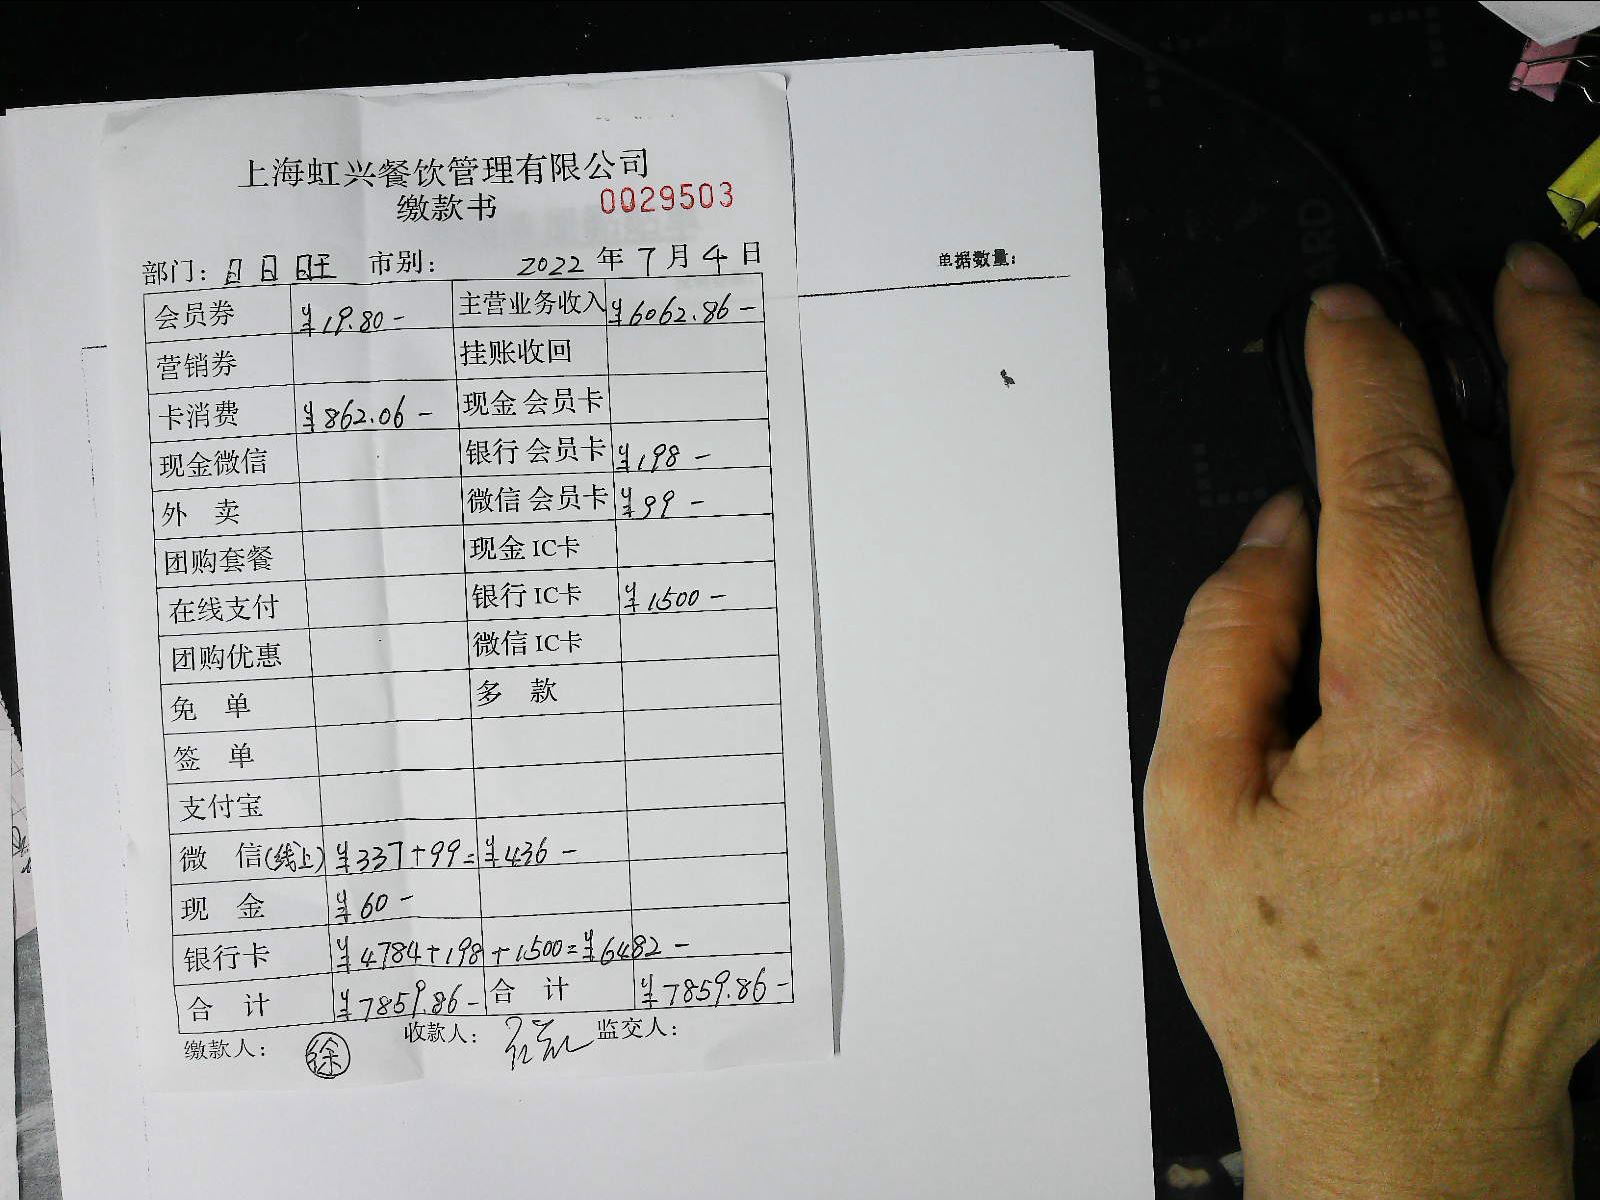 上海虹兴餐饮管理有限公司
缴款书 0029503
部门: 日日旺 市别: 2022 年 7 月 4 日
单据数量:
会员券 ¥19.80- 主营业务收入 ¥6062.86-
营销券 挂账收回
卡消费 ¥862.06- 现金会员卡
现金微信 银行会员卡 ¥198-
外 卖 微信会员卡 ¥99-
团购套餐 现金IC卡
在线支付 银行IC卡 ¥1500-
团购优惠 微信IC卡
免 单 多 款
签 单
支付宝
微 信(线上) ¥337+99=¥436-
现 金 ¥60-
银行卡 ¥4784+198+1500=¥6482-
合 计 ¥7859.86- 合 计 ¥7859.86-
缴款人: 徐 收款人: 监交人: